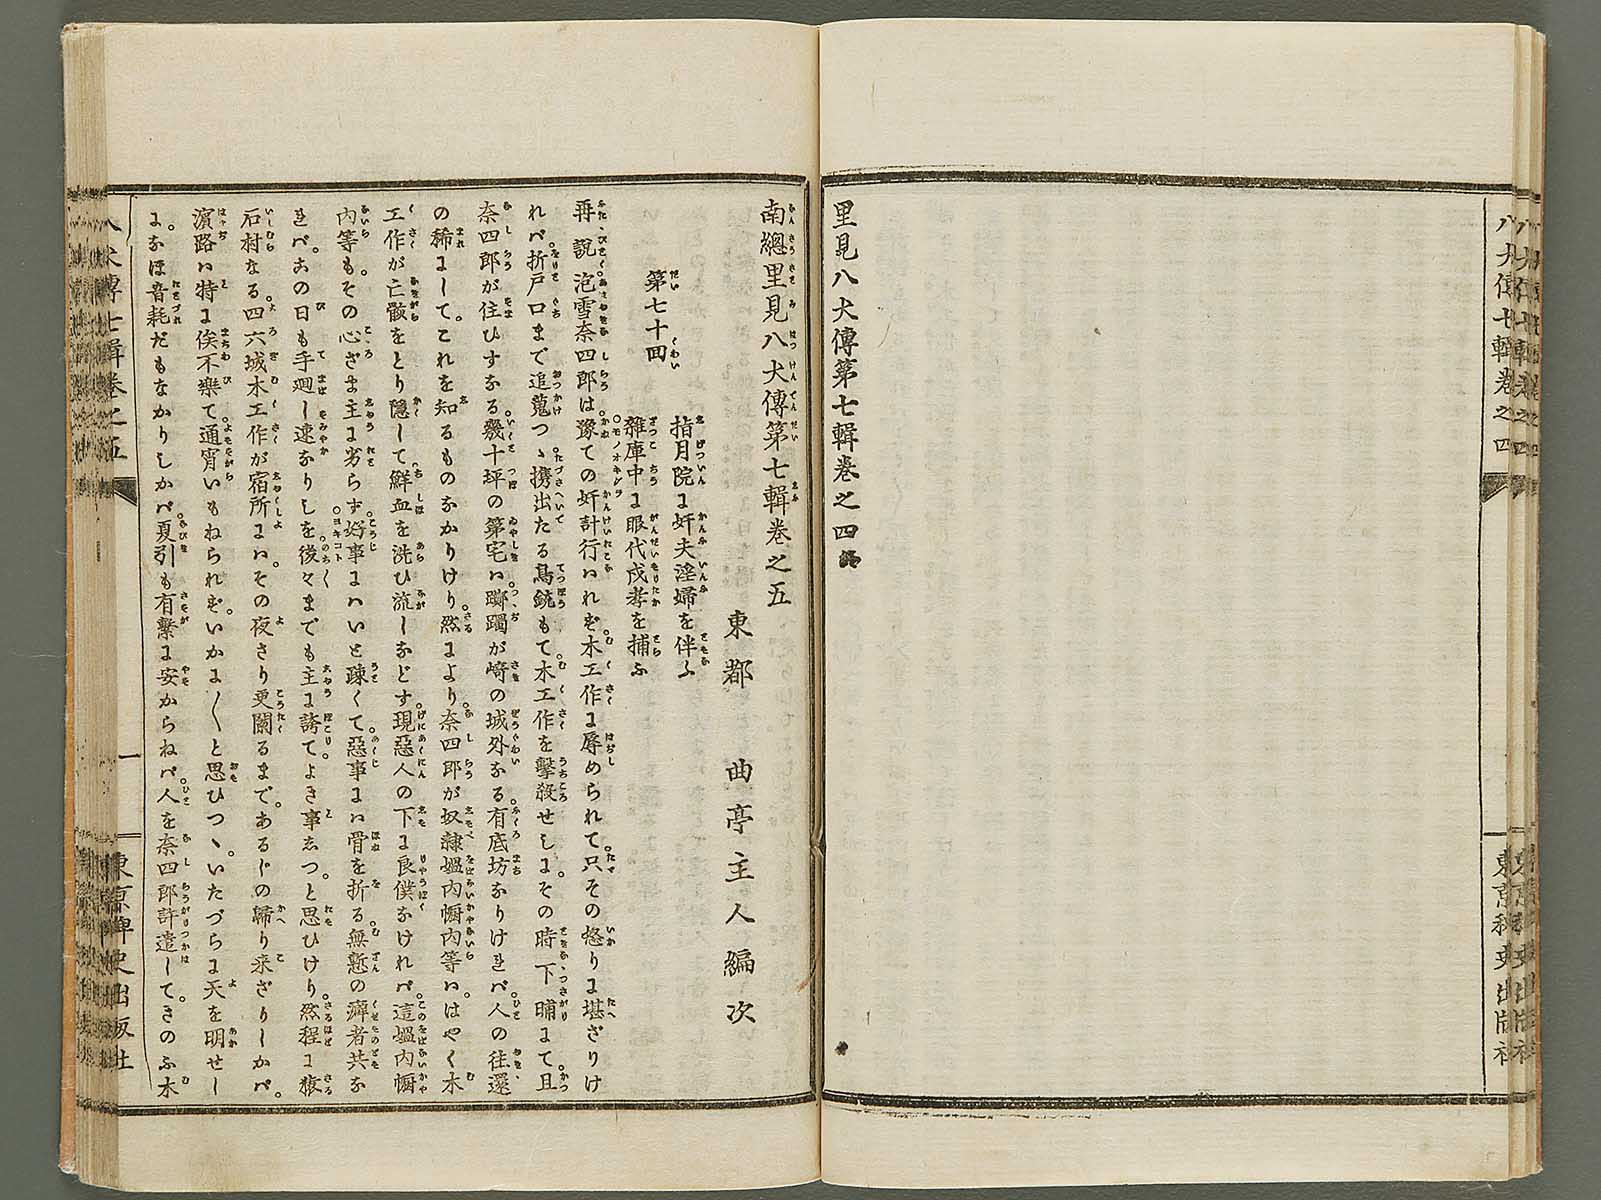 八犬傳七輯卷之四
東京稗史出版社
里見八犬傳第七輯卷之四終
南總里見八犬傳第七輯卷之五
東都 曲亭主人編次
第七十回
指月院に奸夫淫婦を伴ふ
雜庫中に眼代戍孝を捕ふ
再說泡雪奈四郎は。豫ての奸計行ハれず木工作に辱められて。只その怒りに堪ざりけ
れバ。折戸口まで追蒐つゝ。携出たる鳥銃もて。木工作を擊殺せしに。その時下晡にて。且
奈四郎が住ひする。幾十坪の第宅ハ。躑躅が﨑の城外なる。有底坊なりけれバ。人の往還
の稀にして。これを知るものなかりけり。然により。奈四郎が奴隷媼內幮內等ハ。はやく木
工作が亡骸をとり隱して鮮血を洗ひ流しなどす。現惡人の下に良僕なけれバ。這媼內幮
內等も。その心ざま主に劣らず。好事にハいと疎くて。惡事にハ骨を折る。無慙の癖者共な
れバ。この日も手廻し速なりしを。後々までも主に誇て。よき事しつと思ひけり。然程に猿
石村なる。四六城木工作が宿所にハ。その夜さり更闌るまで。あるじの歸り來ざりしかバ。
濵路ハ特に俟不樂て。通宵いもねられず。いかに〳〵と思ひつゝ。いたづらに天を明せし
に。なほ音耗だもなかりしかバ。夏引も有繫に安からねバ。人を奈四郎許遣して。きのふ木
八犬傳七輯卷之五
一
東京稗史出版社